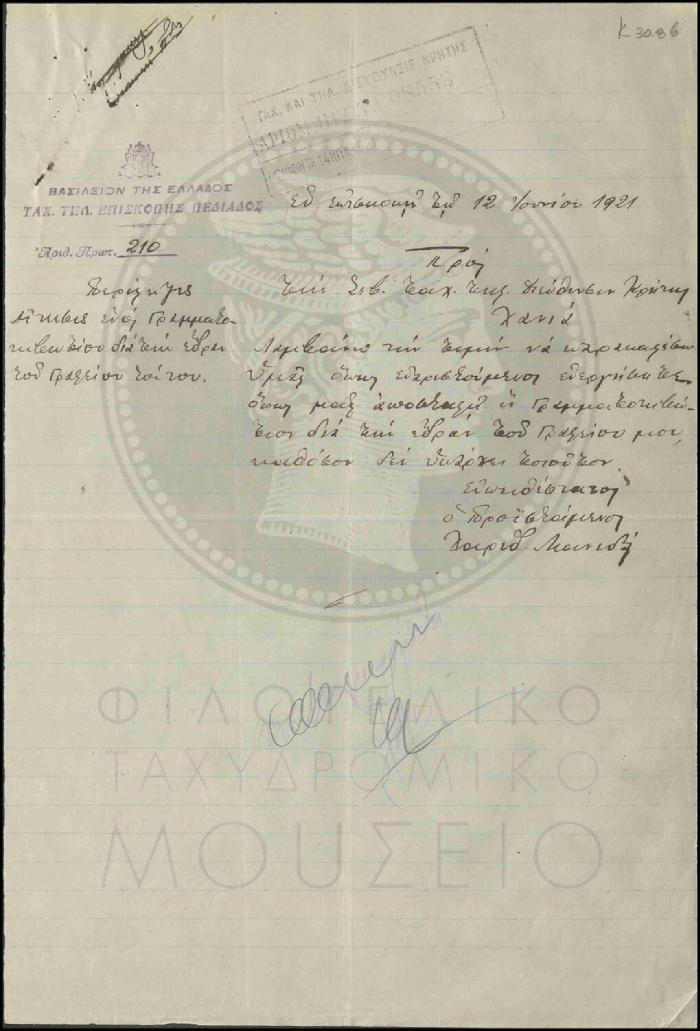 Κ 3086
ΤΑΧ. ΚΑΙ ΤΗΛ. ΔΙΕΥΘΥΝΣΙΣ ΚΡΗΤΗΣ
ΑΡΙΘΜ. ΠΡΩΤ. 08553
ΒΑΣΙΛΕΙΟΝ ΤΗΣ ΕΛΛΑΔΟΣ
ΤΑΧ. ΤΗΛ. ΕΠΙΣΚΟΠΗΣ ΠΕΔΙΑΔΟΣ
Ἀριθ. Πρωτ. 210
Ἐν Ἐπισκοπῇ τῇ 12 Ἰουνίου 1921
Περίληψις
Αἴτησις ἑνός Γραμματο-
κιβωτίου διά τήν ἕδραν
τοῦ Γραφείου τούτου.
Πρός
τήν Σεβ. Ταχ. Τηλ. Διεύθυνσιν Κρήτης
Χανιά
Λαμβάνω τήν τιμήν νά παρακαλέσω
Ὑμᾶς ὅπως εὐαρεστούμενοι ἐνεργήσητε
ὅπως μᾶς ἀποσταλῇ ἕν Γραμματοκιβώ-
τιον διά τήν ἕδραν τοῦ Γραφείου μου,
καθόσον δέν ὑπάρχει τοιοῦτον.
Εὐπειθέστατος
ὁ Προϊστάμενος
ΦΙΛΟΤΕΛΙΚΟ
ΤΑΧΥΔΡΟΜΙΚΟ
ΜΟΥΣΕΙΟ